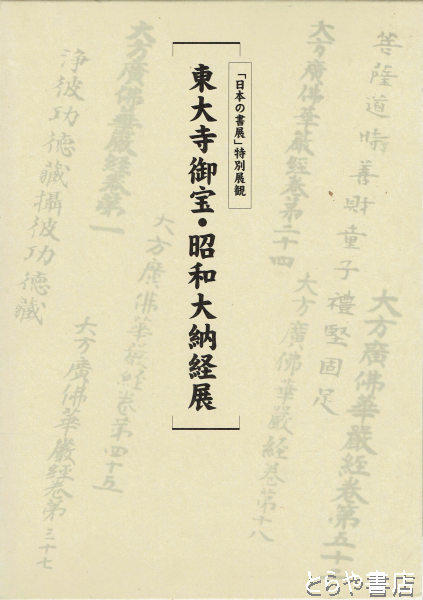 「日本の書展」特別展観
東大寺御宝・昭和大納経展
菩薩道時善財童子禮堅固足
大方廣佛華嚴經卷第五十
大方廣佛華嚴經卷第二十四
大方廣佛華嚴經卷第十八
大方廣佛華嚴經卷第一
大方廣佛華嚴經卷第四十五
淨彼功德藏攝彼功德藏
大方廣佛華嚴經卷第三十七
とらや書店